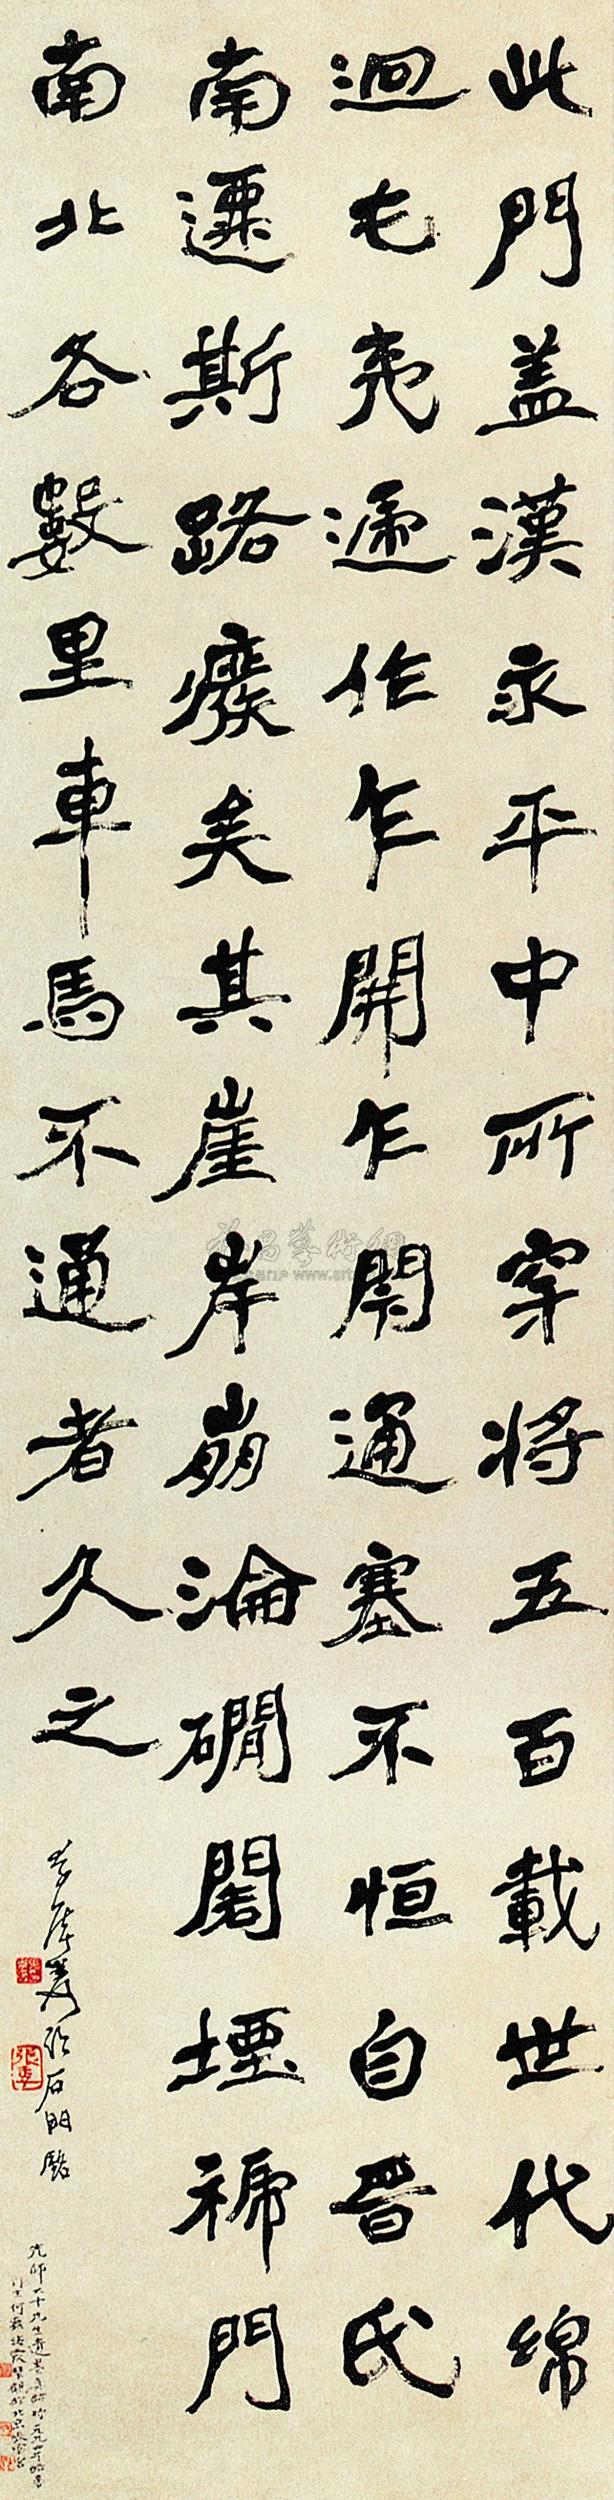 此門盖漢永平中所穿将五百載世代綿
迴屯夷遞作乍開乍閇通塞不恒自晉氏
南遷斯路癈矣其崖岸崩淪磵閣堙褫門
南北各數里車馬不通者久之
爰臨石門銘
先師大千先生遺墨